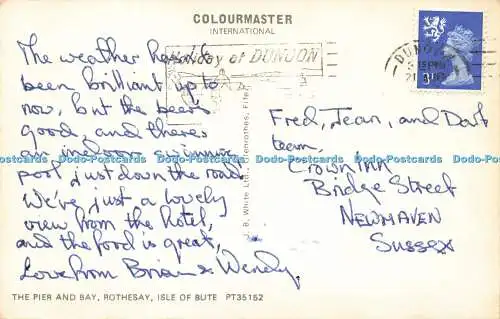 COLOURMASTER
INTERNATIONAL
Holiday at DUNOON
DUNOON
The weather hasn't
been brilliant up to
now, but the beers
good, and theres
an indoors swimming
pool just down the road.
We've just a lovely
view from the hotel,
and the food is great,
Love from Brian & Wendy.
Fred, Jean, and Dart
team,
Crown Inn
Bridge Street
NEWHAVEN
Sussex
J. B. White Ltd.
THE PIER AND BAY, ROTHESAY, ISLE OF BUTE PT35152
Dodo-Postcards Dodo-Postcards Dodo-Postcards Dodo-Postcards Dodo-Postcards Dodo-Postcards